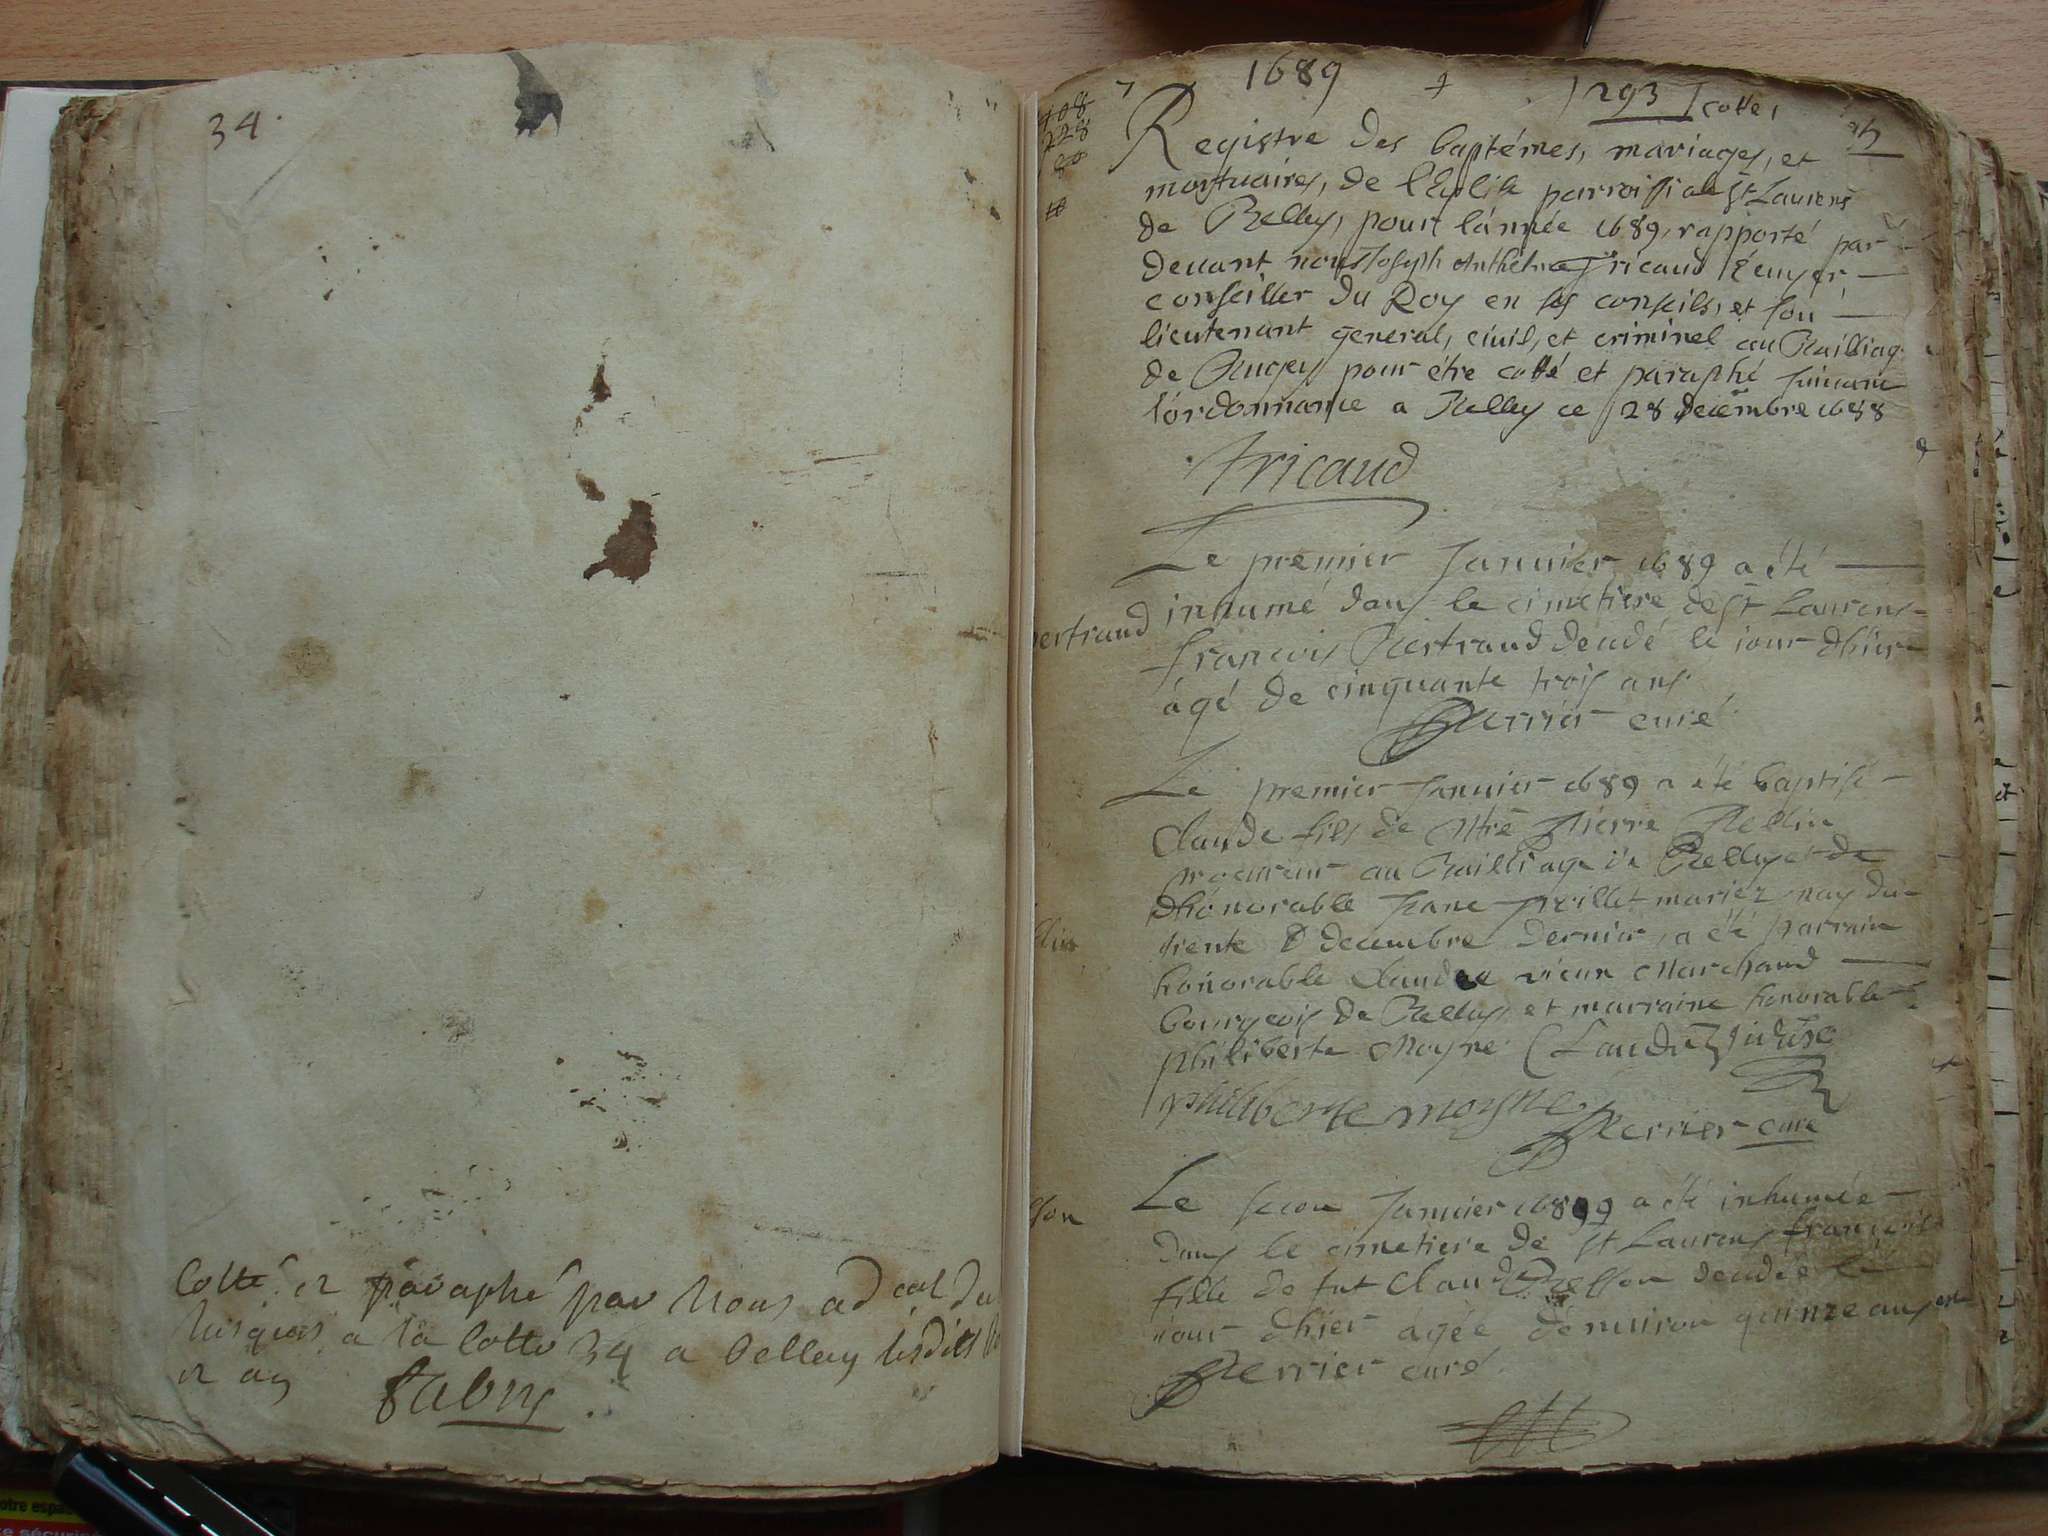 34.
Cotté et paraphé par Nous ad
jusques a la Cotte 34 a Belley lesdits
et an
fabry
1689
293 cotte 1
108
228
80
Registre des baptémes, mariages, et
mortuaires, de l'Eglise parroissiale St Laurens
de Belley, pour l'année 1689, rapporté par
deuant nous Joseph Anthelme Tricaud Ecuyer
conseiller du Roy en ses conseils, et son
lieutenant general, ciuil, et criminel au Bailliage
de Bugey pour étre cotté et paraphé suiuant
l'ordonnance a Belley ce 28 decembre 1688
Tricaud
Le premier Januier 1689 a été
bertrand
inhumé dans le cimetiere de St Laurens
francois Bertrand decedé le jour dhier
ágé de cinquante trois ans
Perrier curé
Le premier Januier 1689 a été baptisé
Claude fils de Mtre Pierre Bellin
procureur au Bailliage de Belley et de
dhonorable Jane mariez nay du
trente decembre dernier, a été parrain
honorable Claude vieux Marchand
bourgeois de Belley, et marraine honorable
philiberte Moyne Claude
philiberte moyne
Perrier curé
Le secon Januier 1689 a été inhumée
dans le cimetiere de St Laurens francoise
fille de fut Claude decedée le
iour dhier agée denuiron quinze ans
Perrier curé